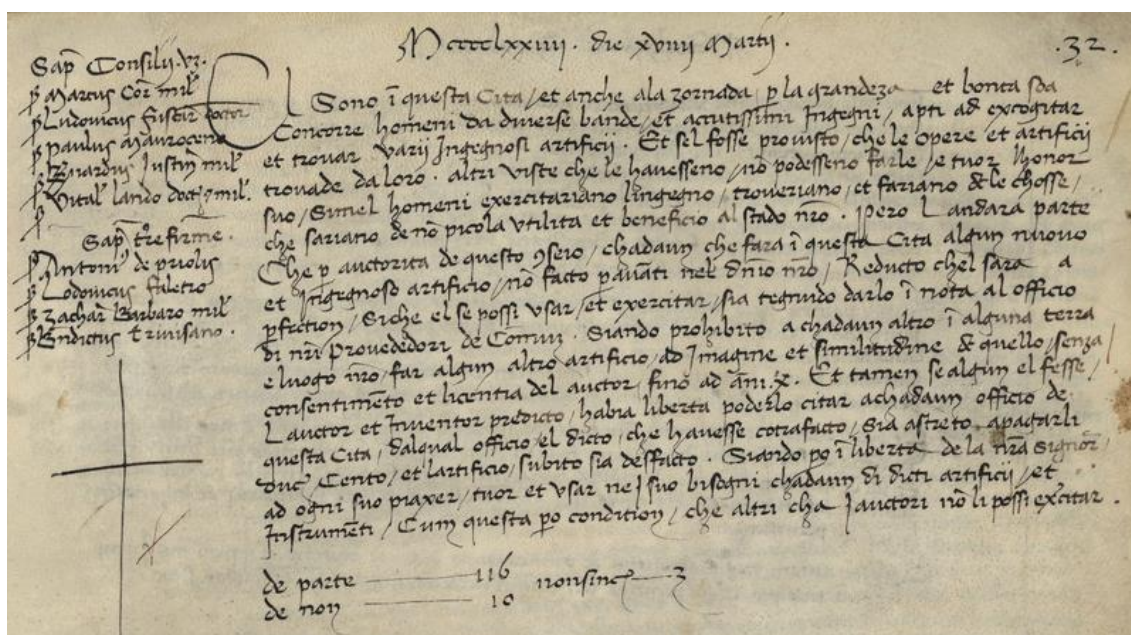 MccccLxxiiii. die xviiii Martii.
.32.
Sap̄ Consilij. vz.
ꝑ Marcus Cor̄ mil̄
ꝑ Ludovicus Fuscar̄ doctor
ꝑ Paulus Mauroceno
ꝑ Justin̄ mil̄
ꝑ Vital̄ lando doct mil̄.
ꝑ
Sap̄ t̄re firme.
ꝑ Antoni de priolis
ꝑ Lodovicus faletro
ꝑ Zachar Barbaro mil̄
ꝑ Bn̄dictus trivisano.
El Sono ī questa Cita / et anche ala zornada ꝑ la grandeza et bonta soa
Concorre homeni da diverse bande / et acutissimi Ingegni, apti ad excogitar
et trovar varij Ingegnosi artificij. Et sel fosse provisto / che le opere et artificij
trovade da loro. altri viste che le havesseno / nō podesseno farle / e tuor lhonor
suo / Simel homeni exercitariano lingegno / troveriano, et fariano de le chosse /
che sariano de nō picola utilita et beneficio al stado nr̄o. Pero Landara parte
Che ꝑ auctorita de questo 9seio / chadaun che fara ī questa Cita algun nuovo
et Ingegnoso artificio / nō facto ꝑ avāti nel dn̄io nr̄o / Reducto chel sara a
ꝑfection / Siche el se possi usar / et exercitar, sia tegnudo darlo ī nota al officio
di nr̄i Provededori de Comun. Siando prohibito a chadaun altro ī alguna terra
e luogo nr̄o, far algun altro artificio / ad Imagine et similitudine de quello / senza
consentimēto et licentia del auctor, fino ad āni. x. Et tamen se algun el fesse /
Lauctor et Inventor predicto / habia liberta poderlo citar achadaun officio de
questa Cita / dalqual officio el dicto, che havesse cōtrafacto, Sia astreto apagarli
duc̄ / Cento / et lartificio / subito sia desfacto. Siando po ī liberta de la nr̄a Signor̄
ad ogni suo piaxer / tuor et usar ne i suo bisogni chadaun di dicti artificij / et
Instrumēti / Cum questa po condition / che altri cha i auctori nō li possi exercitar.
de parte 116
de non 10
nonsinc̄ 3